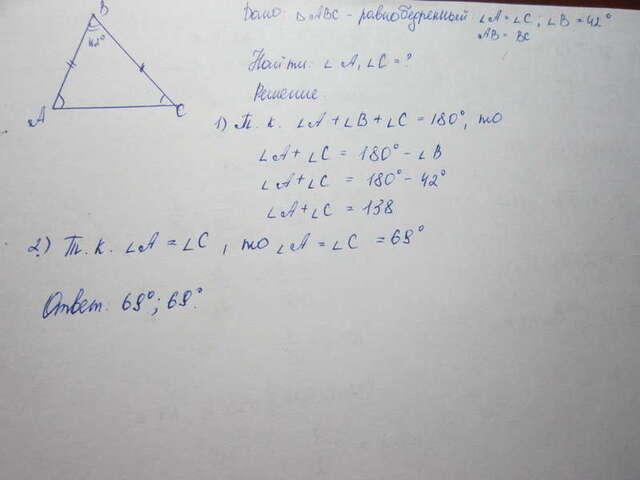 B
42°
A
C
Дано: △ABC - равнобедренный ∠A = ∠C; ∠B = 42°
AB = BC
Найти: ∠A, ∠C = ?
Решение:
1) Т. к. ∠A + ∠B + ∠C = 180°, то
∠A + ∠C = 180° - ∠B
∠A + ∠C = 180° - 42°
∠A + ∠C = 138
2) Т. к. ∠A = ∠C, то ∠A = ∠C = 69°
Ответ: 69°; 69°.